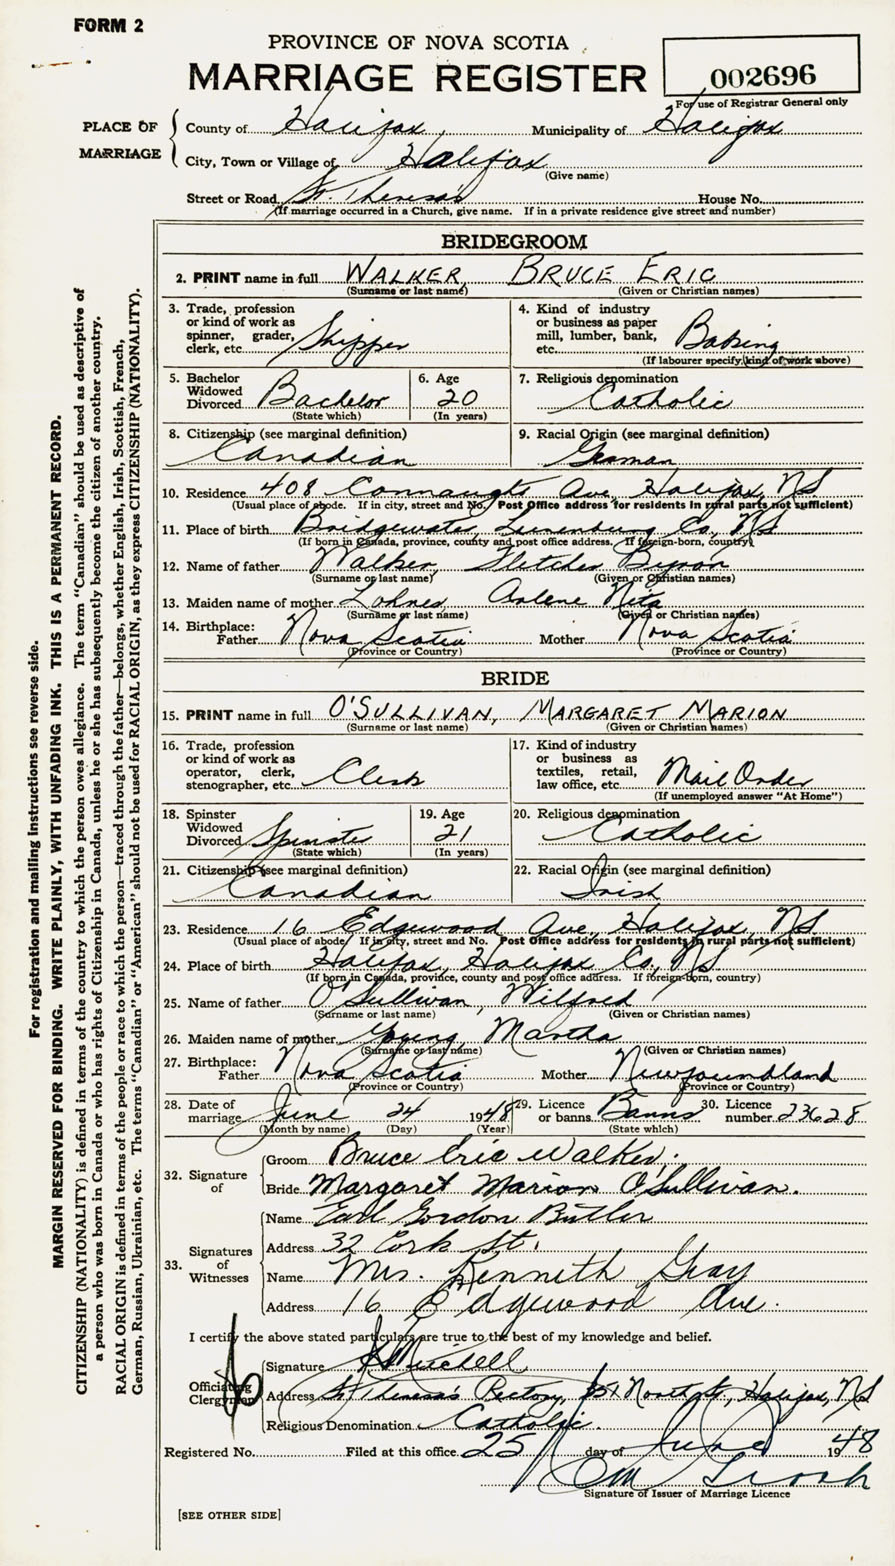 FORM 2
PROVINCE OF NOVA SCOTIA
MARRIAGE REGISTER
002696
For use of Registrar General only
PLACE OF MARRIAGE
County of Halifax Municipality of Halifax
City, Town or Village of Halifax
(Give name)
Street or Road St. Theresa's House No.
(If marriage occurred in a Church, give name. If in a private residence give street and number)
BRIDEGROOM
2. PRINT name in full WALKER, BRUCE ERIC
(Surname or last name) (Given or Christian names)
3. Trade, profession or kind of work as spinner, grader, clerk, etc. Shipper
4. Kind of industry or business as paper mill, lumber, bank, etc. Baking
(If labourer specify kind of work above)
5. Bachelor Widowed Divorced Bachelor
(State which)
6. Age 20
(In years)
7. Religious denomination Catholic
8. Citizenship (see marginal definition) Canadian
9. Racial Origin (see marginal definition) German
10. Residence 408 Connaught Ave, Halifax, NS
(Usual place of abode. If in city, street and No. Post Office address for residents in rural parts not sufficient)
11. Place of birth Bridgewater, Lunenburg Co, NS
(If born in Canada, province, county and post office address. If foreign-born, country)
12. Name of father Walker, Fletcher Byron
(Surname or last name) (Given or Christian names)
13. Maiden name of mother Lohnes, Arlene Nita
(Surname or last name) (Given or Christian names)
14. Birthplace: Father Nova Scotia Mother Nova Scotia
(Province or Country) (Province or Country)
BRIDE
15. PRINT name in full O'SULLIVAN, MARGARET MARION
(Surname or last name) (Given or Christian names)
16. Trade, profession or kind of work as operator, clerk, stenographer, etc. Clerk
17. Kind of industry or business as textiles, retail, law office, etc. Mail Order
(If unemployed answer "At Home")
18. Spinster Widowed Divorced Spinster
(State which)
19. Age 21
(In years)
20. Religious denomination Catholic
21. Citizenship (see marginal definition) Canadian
22. Racial Origin (see marginal definition) Irish
23. Residence 16 Edgewood Ave, Halifax, NS
(Usual place of abode. If in city, street and No. Post Office address for residents in rural parts not sufficient)
24. Place of birth Halifax, Halifax Co, NS
(If born in Canada, province, county and post office address. If foreign-born, country)
25. Name of father O'Sullivan, Wilfred
(Surname or last name) (Given or Christian names)
26. Maiden name of mother Young, Martha
(Surname or last name) (Given or Christian names)
27. Birthplace: Father Nova Scotia Mother Newfoundland
(Province or Country) (Province or Country)
28. Date of marriage June 24 1948 29. Licence or banns Banns 30. Licence number 23628
(Month by name) (Day) (Year) (State which)
32. Signature of
Groom Bruce Eric Walker.
Bride Margaret Marion O'Sullivan.
33. Signatures of Witnesses
Name Earl Gordon Butler
Address 32 Cork St.
Name Mrs. Kenneth Gray
Address 16 Edgewood Ave.
I certify the above stated particulars are true to the best of my knowledge and belief.
Officiating Clergyman
Signature Mitchell
Address St Theresa's Rectory, North St, Halifax, NS
Religious Denomination Catholic.
Registered No. Filed at this office 25 day of June 1948
Signature of Issuer of Marriage Licence
[SEE OTHER SIDE]
For registration and mailing instructions see reverse side.
MARGIN RESERVED FOR BINDING. WRITE PLAINLY, WITH UNFADING INK. THIS IS A PERMANENT RECORD.
CITIZENSHIP (NATIONALITY) is defined in terms of the country to which the person owes allegiance. The term "Canadian" should be used as descriptive of
a person who was born in Canada or who has rights of Citizenship in Canada, unless he or she has subsequently become the citizen of another country.
RACIAL ORIGIN is defined in terms of the people or race to which the person—traced through the father—belongs, whether English, Irish, Scottish, French,
German, Russian, Ukrainian, etc. The terms "Canadian" or "American" should not be used for RACIAL ORIGIN, as they express CITIZENSHIP (NATIONALITY).